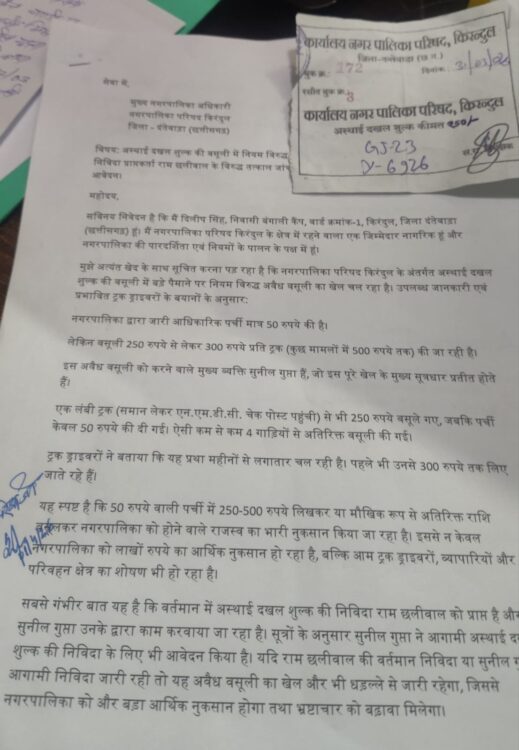 सेवा में,
मुख्य नगरपालिका अधिकारी
नगरपालिका परिषद किरंदुल
जिला - दंतेवाड़ा (छत्तीसगढ़)
विषय: अस्थाई दखल शुल्क की वसूली में नियम विरुद्ध
निविदा प्राप्तकर्ता राम छलीवाल के विरुद्ध तत्काल जांच
आवेदन।
महोदय,
सविनय निवेदन है कि मैं दिलीप सिंह, निवासी बंगाली कैंप, वार्ड क्रमांक-1, किरंदुल, जिला दंतेवाड़ा
(छत्तीसगढ़) हूं। मैं नगरपालिका परिषद किरंदुल के क्षेत्र में रहने वाला एक जिम्मेदार नागरिक हूं और
नगरपालिका की पारदर्शिता एवं नियमों के पालन के पक्ष में हूं।
मुझे अत्यंत खेद के साथ सूचित करना पड़ रहा है कि नगरपालिका परिषद किरंदुल के अंतर्गत अस्थाई दखल
शुल्क की वसूली में बड़े पैमाने पर नियम विरुद्ध अवैध वसूली का खेल चल रहा है। उपलब्ध जानकारी एवं
प्रभावित ट्रक ड्राइवरों के बयानों के अनुसार:
नगरपालिका द्वारा जारी आधिकारिक पर्ची मात्र 50 रुपये की है।
लेकिन वसूली 250 रुपये से लेकर 300 रुपये प्रति ट्रक (कुछ मामलों में 500 रुपये तक) की जा रही है।
इस अवैध वसूली को करने वाले मुख्य व्यक्ति सुनील गुप्ता हैं, जो इस पूरे खेल के मुख्य सूत्रधार प्रतीत होते
हैं।
एक लंबी ट्रक (समान लेकर एन.एम.डी.सी. चेक पोस्ट पहुंची) से भी 250 रुपये वसूले गए, जबकि पर्ची
केवल 50 रुपये की दी गई। ऐसी कम से कम 4 गाड़ियों से अतिरिक्त वसूली की गई।
ट्रक ड्राइवरों ने बताया कि यह प्रथा महीनों से लगातार चल रही है। पहले भी उनसे 300 रुपये तक लिए
जाते रहे हैं।
यह स्पष्ट है कि 50 रुपये वाली पर्ची में 250-500 रुपये लिखकर या मौखिक रूप से अतिरिक्त राशि
वसूलकर नगरपालिका को होने वाले राजस्व का भारी नुकसान किया जा रहा है। इससे न केवल
नगरपालिका को लाखों रुपये का आर्थिक नुकसान हो रहा है, बल्कि आम ट्रक ड्राइवरों, व्यापारियों और
परिवहन क्षेत्र का शोषण भी हो रहा है।
सबसे गंभीर बात यह है कि वर्तमान में अस्थाई दखल शुल्क की निविदा राम छलीवाल को प्राप्त है और
सुनील गुप्ता उनके द्वारा काम करवाया जा रहा है। सूत्रों के अनुसार सुनील गुप्ता ने आगामी अस्थाई द
शुल्क की निविदा के लिए भी आवेदन किया है। यदि राम छलीवाल की वर्तमान निविदा या सुनील गु
आगामी निविदा जारी रही तो यह अवैध वसूली का खेल और भी धड़ल्ले से जारी रहेगा, जिससे
नगरपालिका को और बड़ा आर्थिक नुकसान होगा तथा भ्रष्टाचार को बढ़ावा मिलेगा।
कार्यालय नगर पालिका परिषद, किरन्दुल
जिला-दन्तेवाड़ा (छ.ग.)
बुक क्र. 272 दिनांक 31/03/26
रसीद बुक क्र. 8
कार्यालय नगर पालिका परिषद, किरन्दुल
अस्थाई दखल शुल्क कीमत 250/-
GJ-23
Y-6926